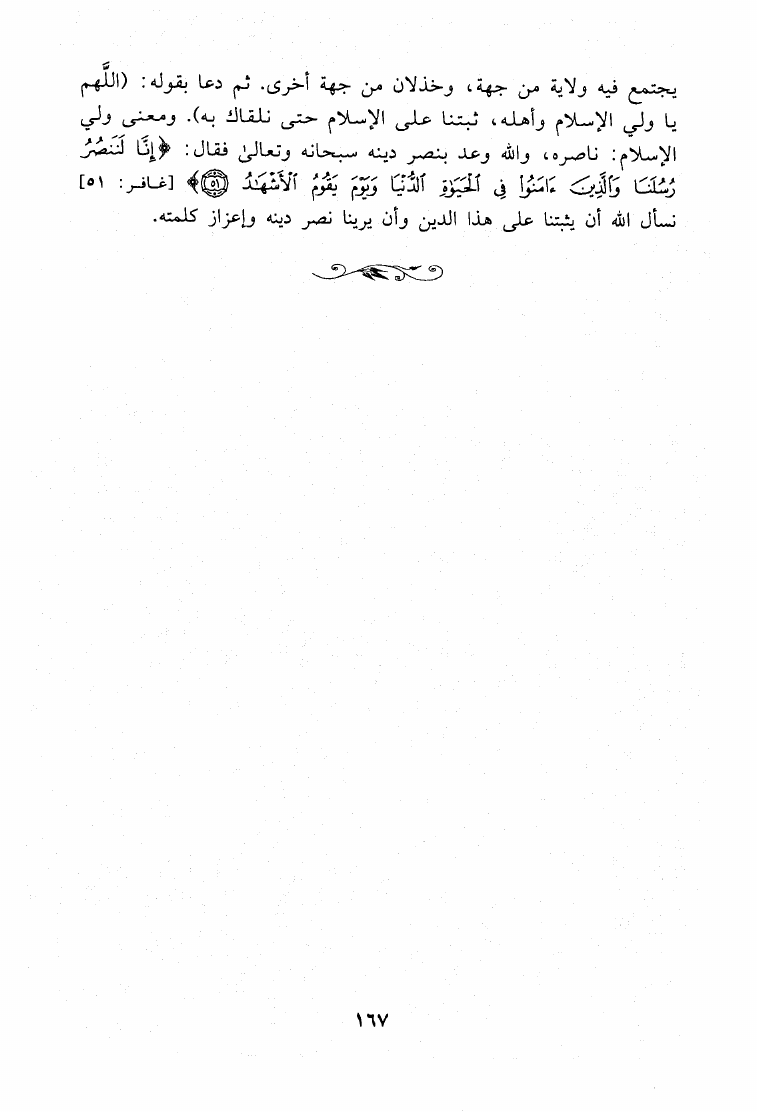 يجتمع فيه ولاية من جهة، وخذلان من جهة أخرى. ثم دعا بقوله: (اللَّهم
يا ولي الإسلام وأهله، ثبتنا على الإسلام حتى نلقاك به). ومعنى ولي
الإسلام: ناصره، والله وعد بنصر دينه سبحانه وتعالىٰ فقال: ﴿إِنَّا لَنَنصُرُ
رُسُلَنَا وَٱلَّذِينَ ءَامَنُوا۟ فِى ٱلْحَيَوٰةِ ٱلدُّنْيَا وَيَوْمَ يَقُومُ ٱلْأَشْهَـٰدُ ٥١﴾ [غافر: ٥١]
نسأل الله أن يثبتنا على هذا الدين وأن يرينا نصر دينه وإعزاز كلمته.
١٦٧